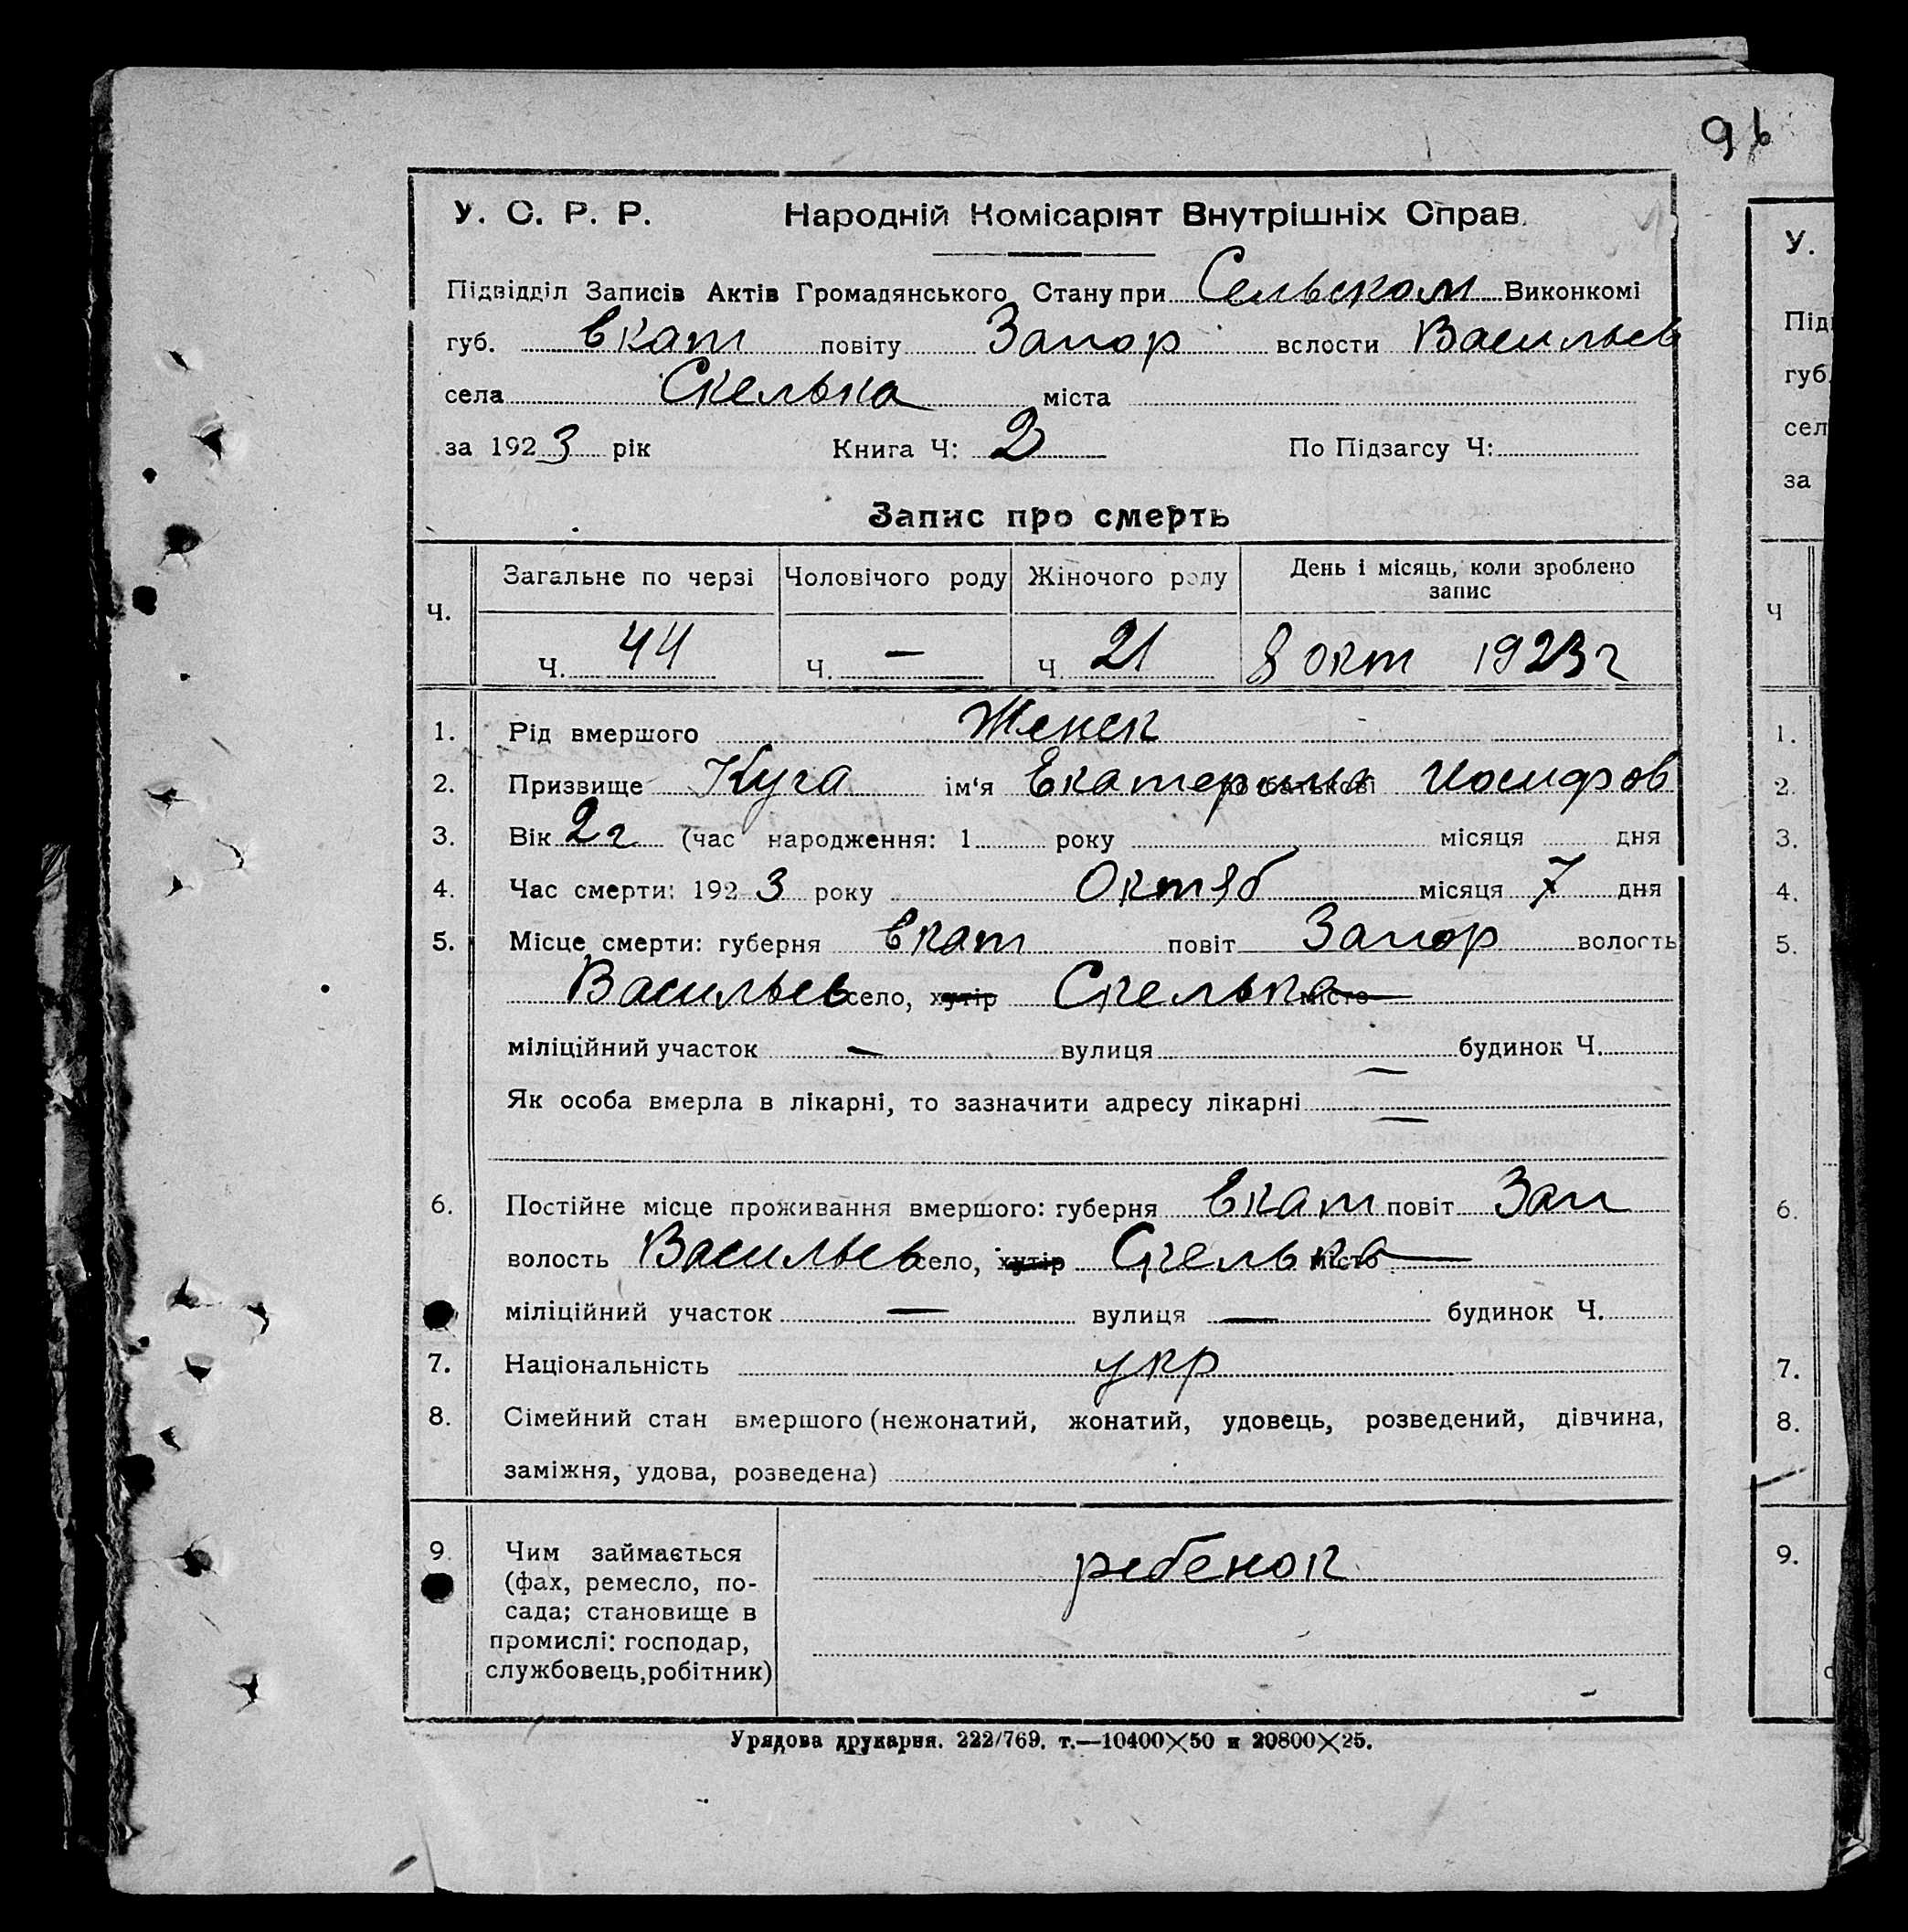 96
У. С. Р. Р. Народній Комісаріят Внутрішніх Справ.
Підвідділ Записів Актів Громадянського Стану при Сельском Виконкомі
губ. Екат повіту Запор вслости Васильев
села Скелька міста
за 1923 рік Книга Ч: 2 По Підзагсу Ч:
Запис про смерть
Ч. Загальне по черзі Чоловічого роду Жіночого роду День і місяць, коли зроблено запис
Ч. 44 Ч. — Ч. 21 8 окт 1923 г
1. Рід вмершого Женск
2. Призвище Куга ім‘я Екатерина по батькові Иосифов
3. Вік 2 г (час народження: 1 року місяця дня
4. Час смерти: 1923 року Октяб місяця 7 дня
5. Місце смерти: губерня Екат повіт Запор волость
Васильев село, хутір Скелька місто
міліційний участок — вулиця — будинок Ч.
Як особа вмерла в лікарні, то зазначити адресу лікарні —
6. Постійне місце проживання вмершого: губерня Екат повіт Зап
волость Васильев село, хутір Скелька місто
міліційний участок — вулиця — будинок Ч.
7. Національність укр
8. Сімейний стан вмершого (нежонатий, жонатий, удовець, розведений, дівчина,
заміжня, удова, розведена)
9. Чим займається ребенок
(фах, ремесло, по-
сада; становище в
промислі: господар,
службовець, робітник)
Урядова друкарня. 222/769. т.—10400×50 и 20800×25.
У.
губ.
сел
за
Ч
1.
2.
3.
4.
5.
6.
7.
8.
9.